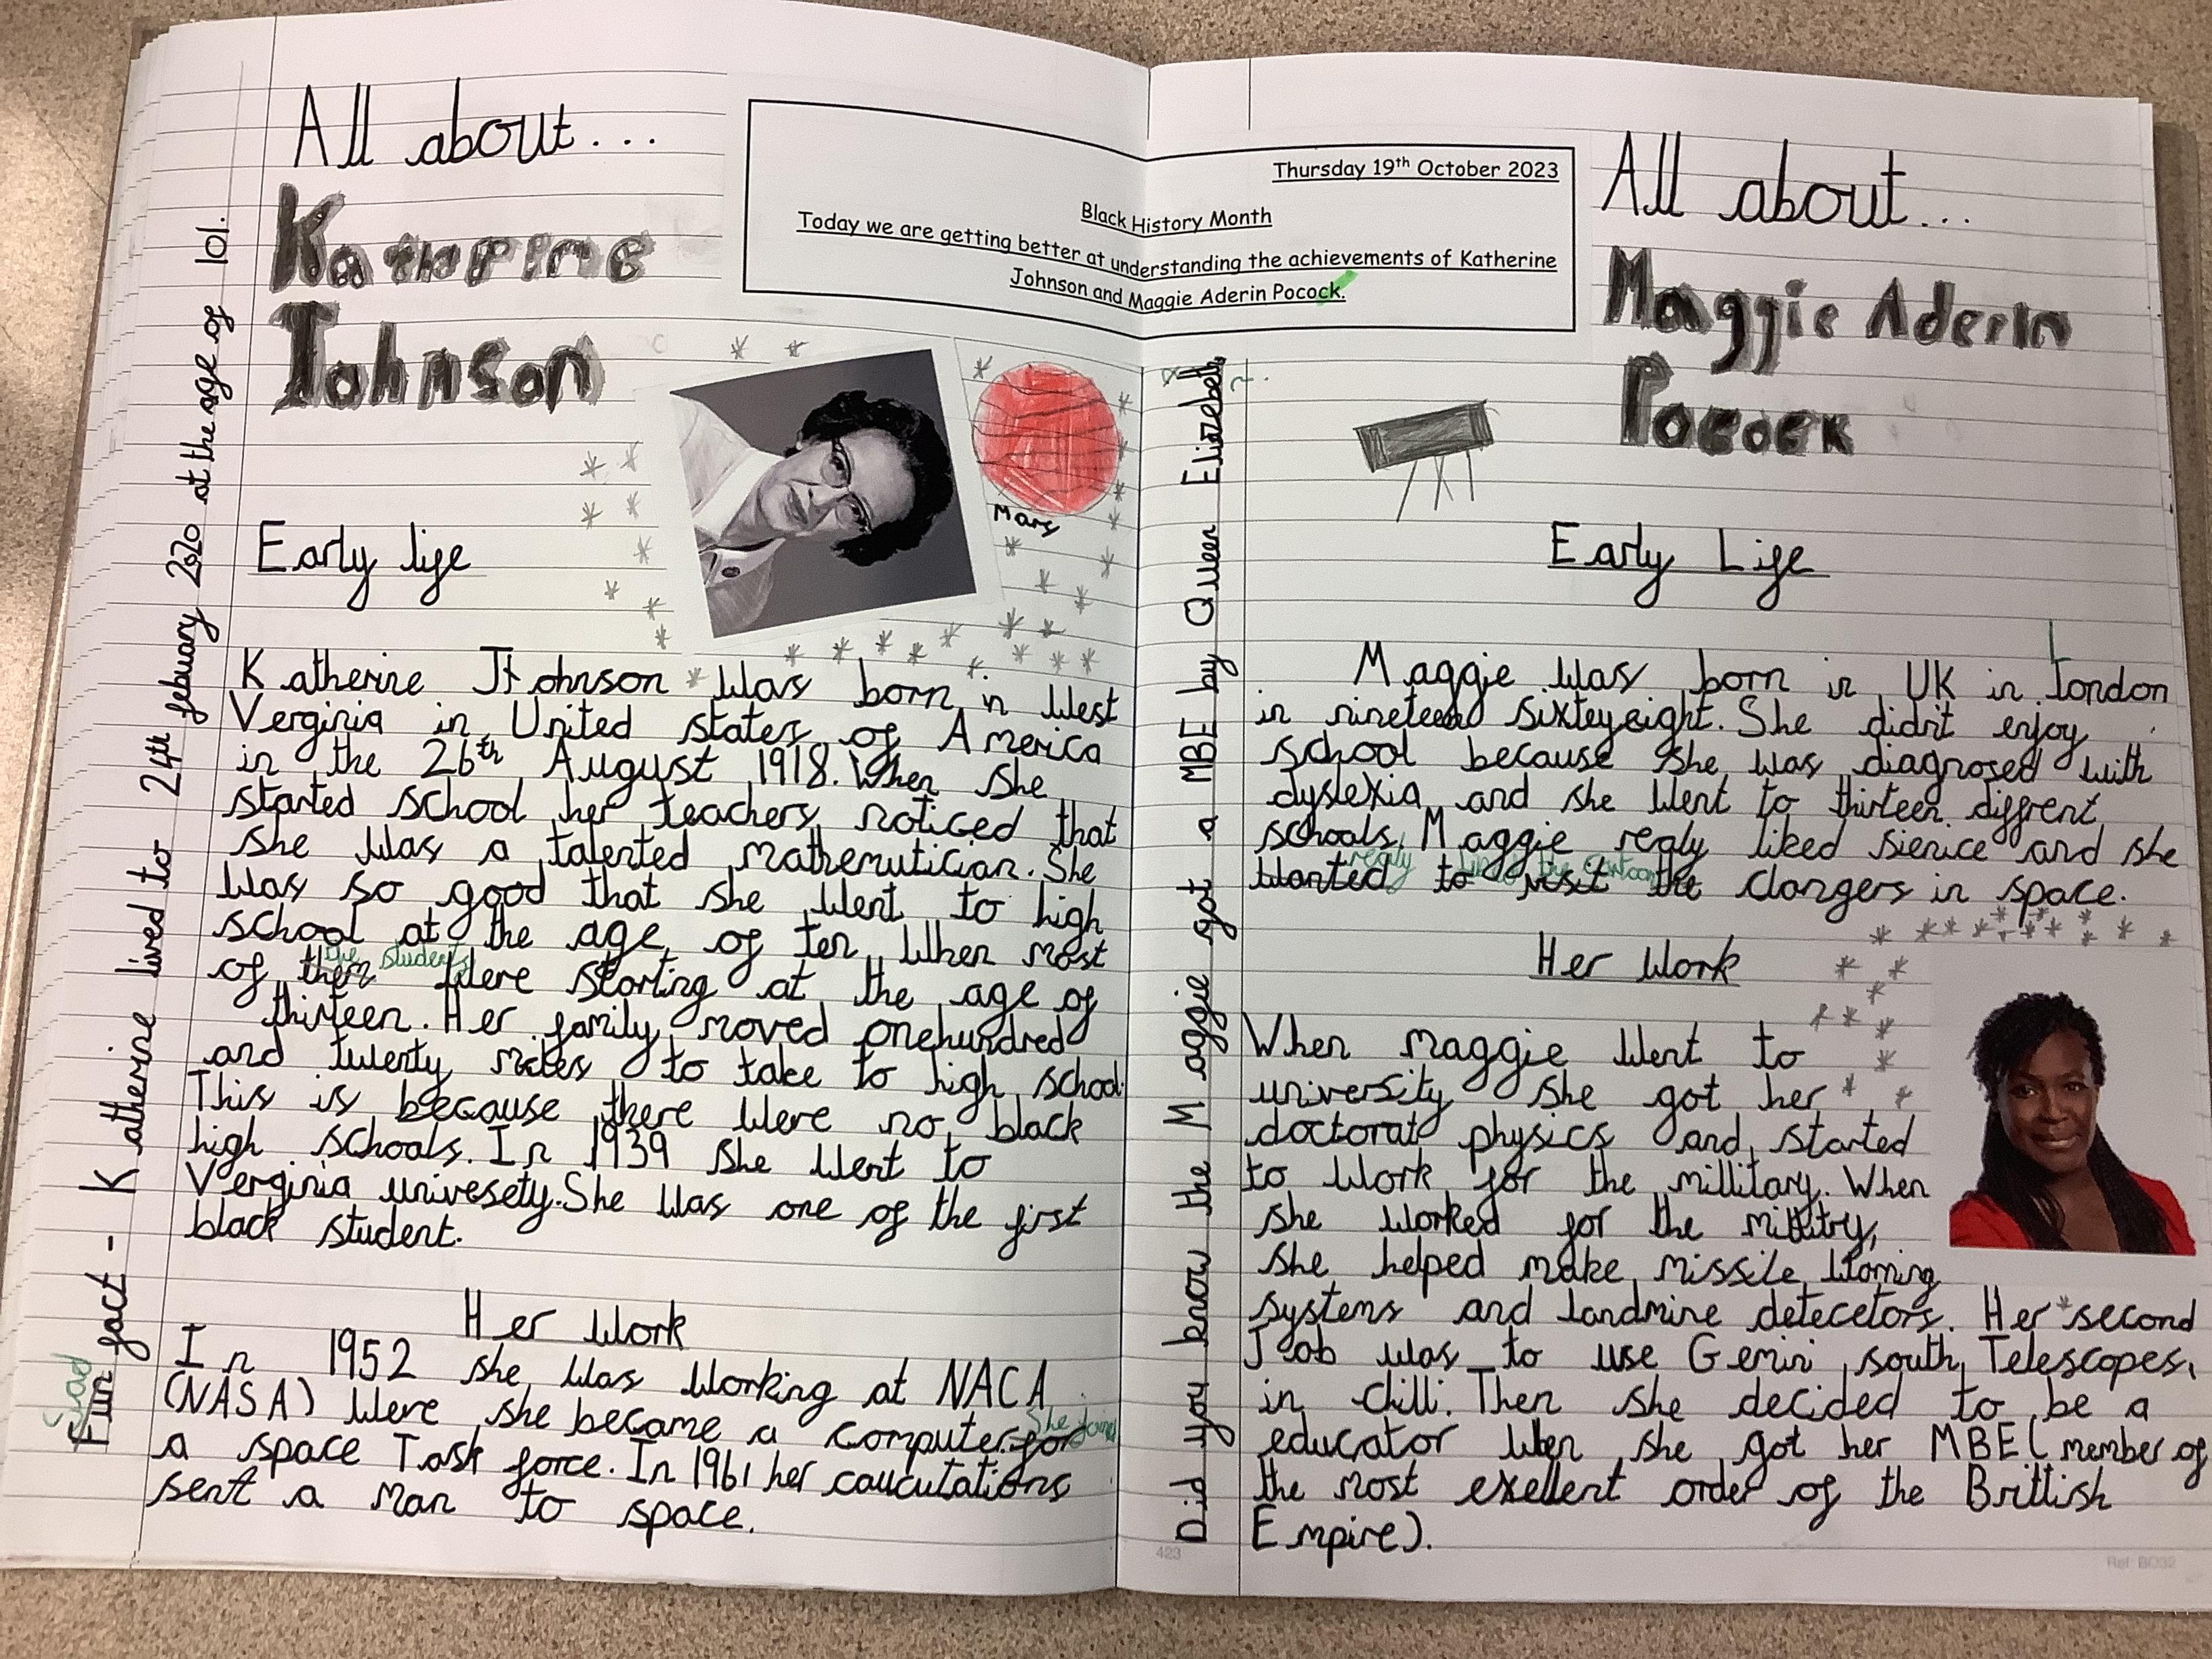 All about...
Katherine
Johnson
Thursday 19th October 2023
Black History Month
Today we are getting better at understanding the achievements of Katherine
Johnson and Maggie Aderin Pocock.
Mars
Early life
Katherine Johnson was born in West
Verginia in United states of America
in the 26th August 1918. When she
started school her teachers noticed that
she was a talented mathemutician. She
was so good that she went to high
school at the age of ten when most
the students
of them were starting at the age of
thirteen. Her family moved onehundred
and twenty miles to take to high school.
This is because there were no black
high schools. In 1939 she went to
Verginia univesety. She was one of the first
black student.
Her work
In 1952 she was working at NACA
(NASA) were she became a computer for
She joind
a space Task force. In 1961 her caucutations
sent a man to space.
Sad
Fun fact - Katherine lived to 24th febuary 2020 at the age of 101.
All about...
Maggie Aderin
Pocock
Early Life
Maggie was born in UK in London
in nineteen sixtey eight. She didn't enjoy
school because she was diagnosed with
dyslexia and she went to thirteen diffrent
schools. Maggie realy liked sience and she
realy liked the cartoon
wanted to visit the clangers in space.
Her work
When maggie went to
university she got her
doctorat physics and started
to work for the millitary. When
she worked for the millitry,
she helped make missile warning
systems and landmine detecetors. Her second
Job was to use Gemin south Telescopes,
in chilli. Then she decided to be a
educator when she got her MBE (member of
the most exellent order of the Brittish
Empire).
Did you know the Maggie got a MBE by Queen Elizebeth
423
Ref: BO32